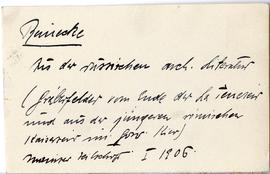 Reinecke
Aus der russischen arch. Literatur
(Gräberfelder vom Ende der La Tenezeit
und aus der jüngeren römischen
Kaiserzeit im Gouv. Kiew)
Mainzer Zeitschrift I 1906